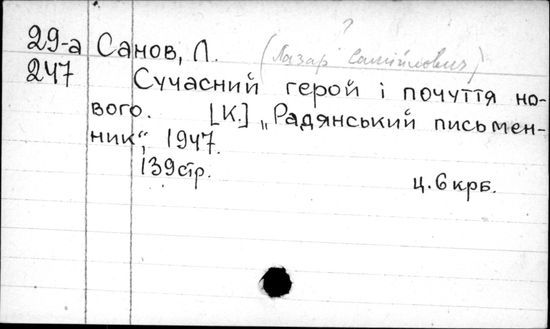 ?
29-а Санов, Л. (Лазар Самійлович)
247 Сучасний герой і почуття но-
вого. [К.] „Радянський письмен-
ник“, 1947.
139стр.
ц. 6 крб.